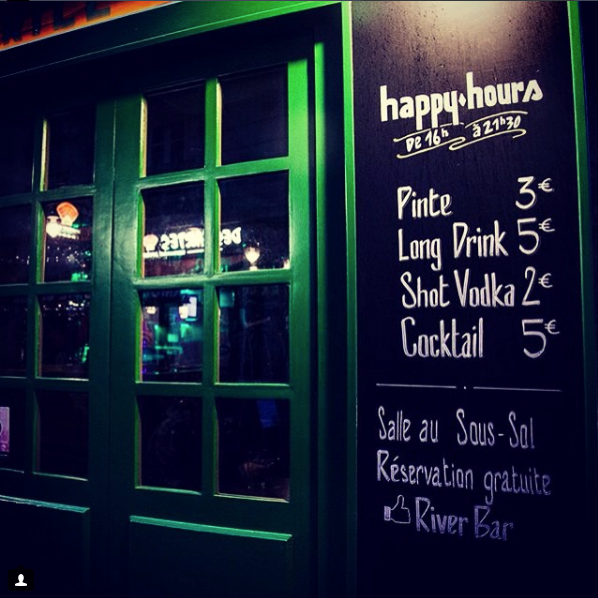 happy hours
De 16h à 21h30
Pinte 3€
Long Drink 5€
Shot Vodka 2€
Cocktail 5€
Salle au Sous-Sol
Réservation gratuite
River Bar